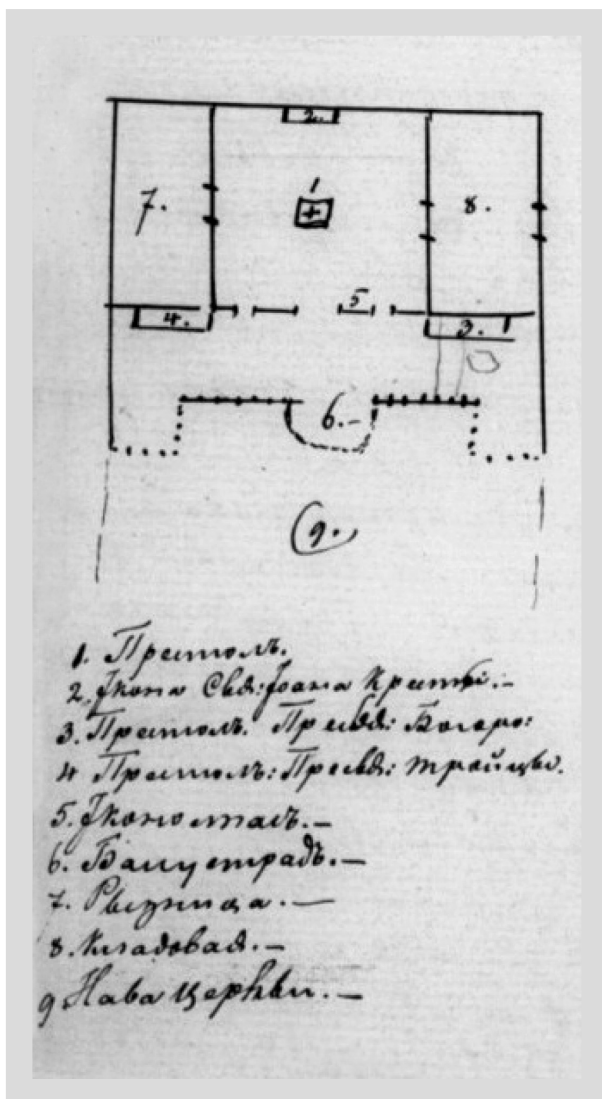 2.
1
7.
8.
5
4.
3.
6.-
9.
1. Престолъ.
2. Ікона Свя: Іоана Крести: -
3. Престолъ. Пресвя: Богоро:
4 Престолъ: Пресвя: Тройцы.
5. Іконостасъ. -
6. Балустрадъ. -
7. Рызница. -
8. Кладовая. -
9 Нава Церкви. -